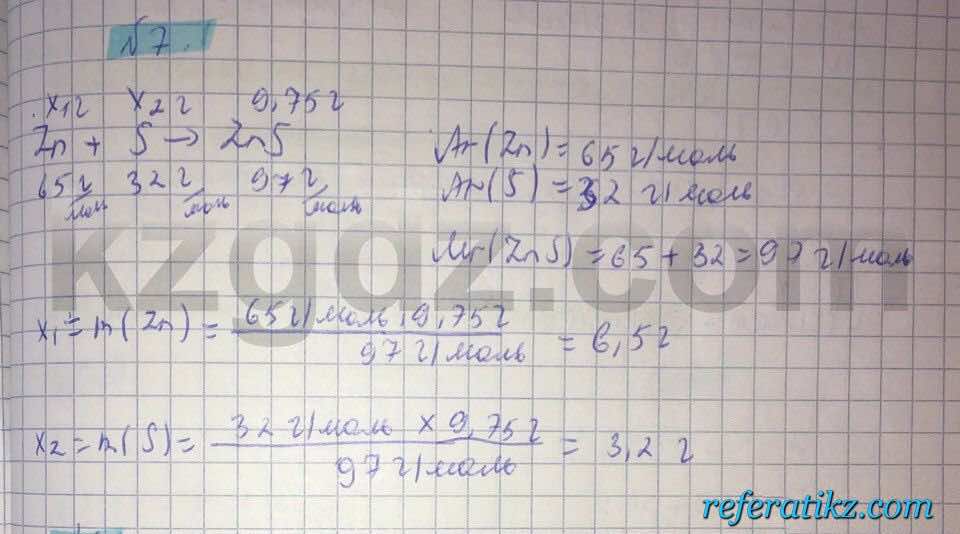 №7.
x₁г x₂ г 9,75г
Zn + S → ZnS
65 г/моль 32 г/моль 97 г/моль
Ar(Zn) = 65 г/моль
Ar(S) = 32 г/моль
Mr(ZnS) = 65 + 32 = 97 г/моль
x₁ = m(Zn) = 65 г/моль · 9,75г / 97 г/моль = 6,5г
x₂ = m(S) = 32 г/моль × 9,75 г / 97 г/моль = 3,2 г
kzgdz.com
referatikz.com